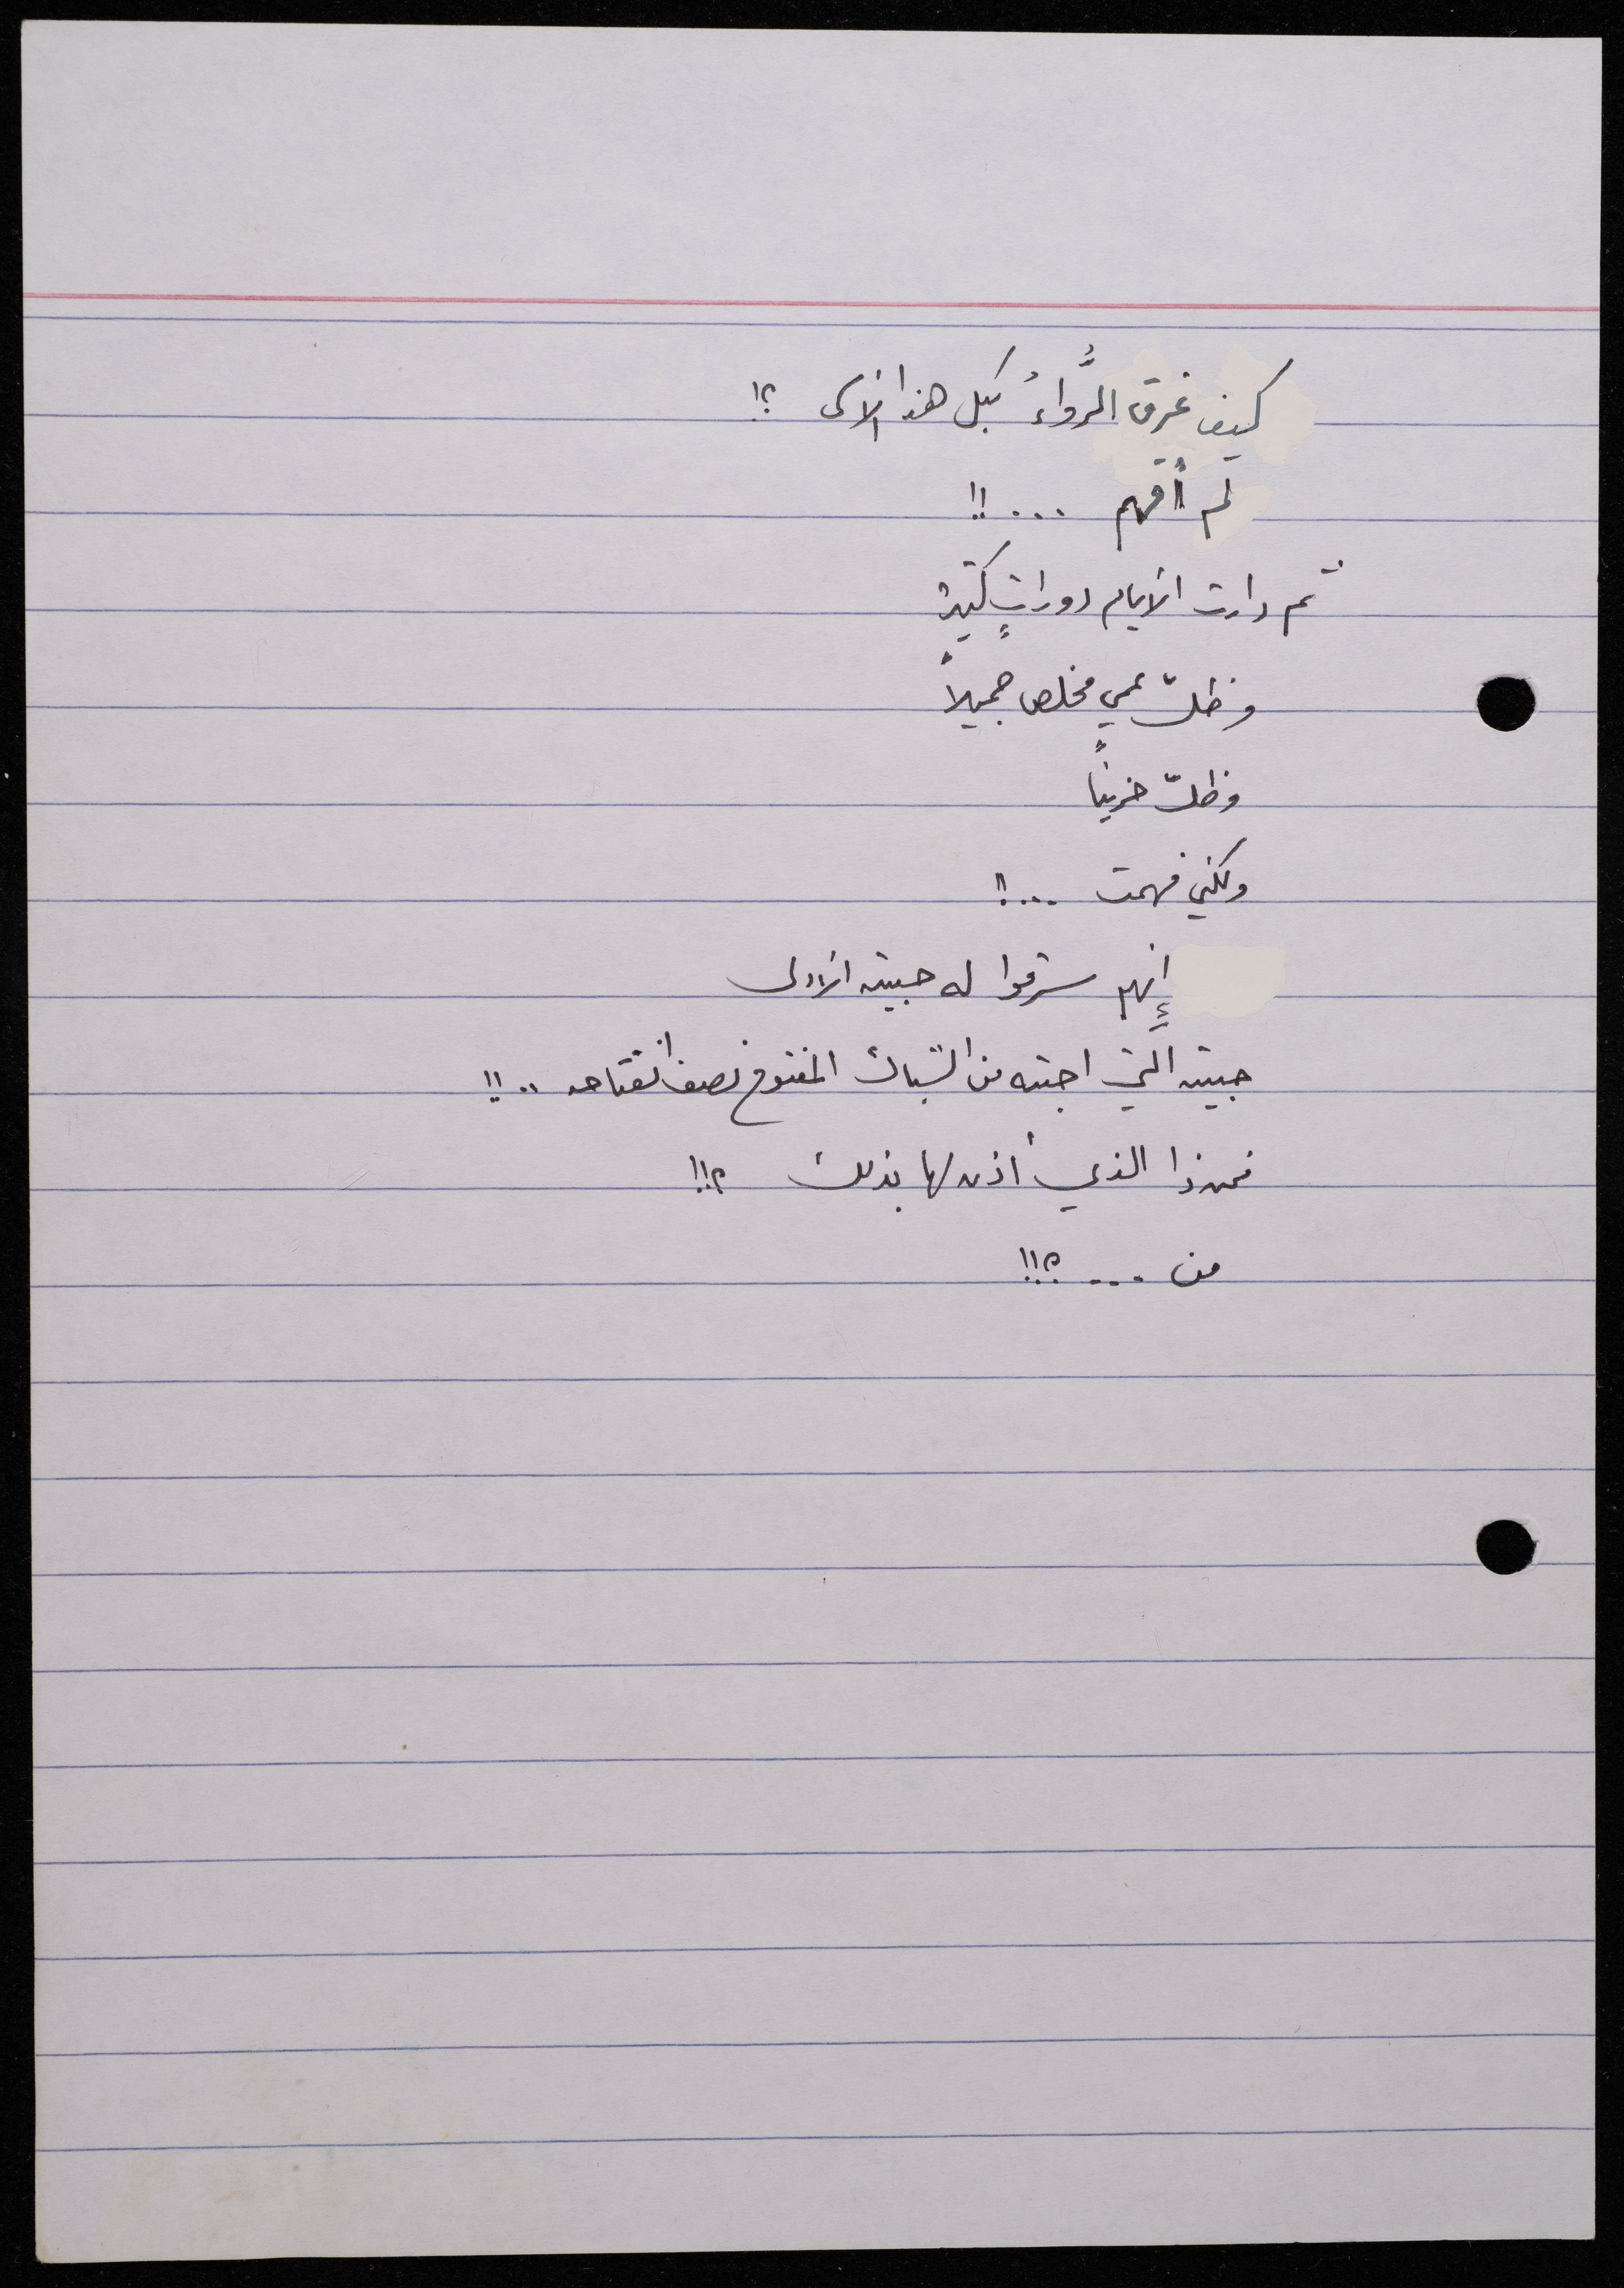 كيف غرق الرُّواءُ بكل هذا الأسى ؟!
لم أفهم ... !!
ثم دارت الأيام دوراتٍ كثيرة
وظلّ عمي مخلص جميلاً
وظلّ حزيناً
ولكني فهمت ... !!
إنهم سرقوا له حبيبته الأولى
حبيبته التي احبته من الشباك المفتوح نصف انفتاحه .. !!
فمن ذا الذي أذن لها بذلك ؟!!
من ... ؟!!!